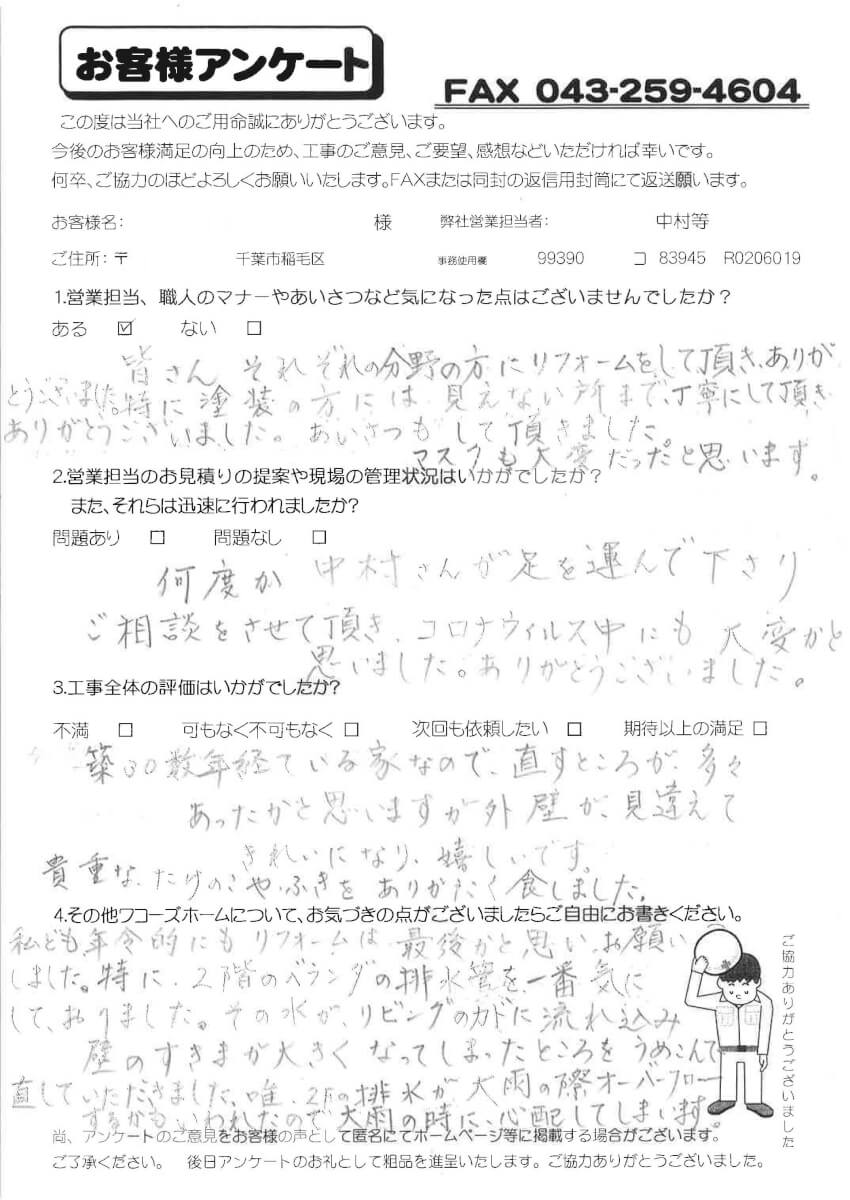 お客様アンケート
FAX 043-259-4604
この度は当社へのご用命誠にありがとうございます。
今後のお客様満足の向上のため、工事のご意見、ご要望、感想などいただければ幸いです。
何卒、ご協力のほどよろしくお願いいたします。FAXまたは同封の返信用封筒にて返送願います。
お客様名: 様 弊社営業担当者: 中村等
ご住所:〒 千葉市稲毛区 事務使用欄 99390 コ 83945 R0206019
1.営業担当、職人のマナーやあいさつなど気になった点はございませんでしたか?
ある ☑ ない □
皆さん それぞれの分野の方にリフォームをして頂き、ありが
とうございました。特に塗装の方には 見えない所まで、丁寧にして頂き
ありがとうございました。あいさつもして頂きました。
マスクも大変だったと思います。
2.営業担当のお見積りの提案や現場の管理状況はいかがでしたか?
また、それらは迅速に行われましたか?
問題あり □ 問題なし □
何度か 中村さんが足を運んで下さり
ご相談をさせて頂き、コロナウィルス中にも大変かと
思いました。ありがとうございました。
3.工事全体の評価はいかがでしたか?
不満 □ 可もなく不可もなく □ 次回も依頼したい □ 期待以上の満足 □
築30数年経ている家なので、直すところが、多々
あったかと思いますが外壁が、見違えて
きれいになり、嬉しいです。
貴重な、たけのこや、ふきをありがたく食しました。
4.その他ワコーズホームについて、お気づきの点がございましたらご自由にお書きください。
私ども年令的にもリフォームは最後かと思い、お願い
しました。特に、2階のベランダの排水管を一番気に
して、おりました。その水が、リビングのカドに流れ込み
壁のすきまが大きくなってしまったところをうめこんで
直していただきました、唯、2Fの排水が大雨の際オーバーフロー
するかもいわれたので大雨の時に心配してしまいます。
ご協力ありがとうございました
尚、アンケートのご意見をお客様の声として匿名にてホームページ等に掲載する場合がございます。
ご了承ください。 後日アンケートのお礼として粗品を進呈いたします。ご協力ありがとうございました。